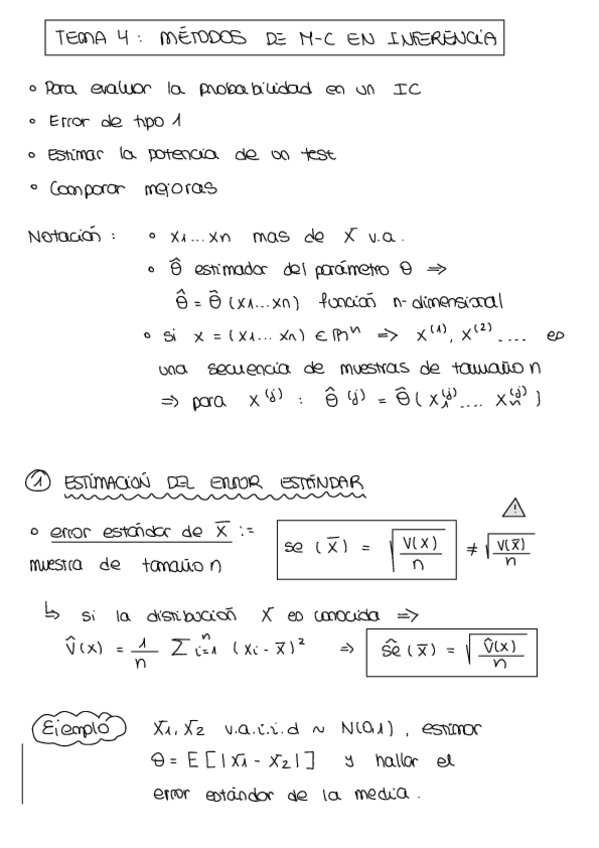 TEMA 4: MÉTODOS DE M-C EN INFERENCIA
• Para evaluar la probabilidad en un IC
• Error de tipo 1
• Estimar la potencia de un test
• Comparar mejoras
Notación: • x1...xn mas de X v.a.
• θ̂ estimador del parámetro θ ⇒
θ̂ = θ̂ (x1...xn) función n-dimensional
• si x = (x1... xn) ∈ ℝⁿ ⇒ x⁽¹⁾, x⁽²⁾.... es
una secuencia de muestras de tamaño n
⇒ para x⁽ʲ⁾ : θ̂⁽ʲ⁾ = θ̂(x₁⁽ʲ⁾.... xₙ⁽ʲ⁾)
① ESTIMACIÓN DEL ERROR ESTÁNDAR
• error estándar de x̄ := se (x̄) = √(V(x)/n) ≠ √(V(x̄)/n)
muestra de tamaño n
↳ si la distribución X es conocida ⇒
V̂(x) = 1/n Σ i=1 n (xi - x̄)² ⇒ sê (x̄) = √(V̂(x)/n)
Ejemplo X1, X2 v.a.i.i.d ~ N(0,1), estimar
θ = E[|X1 - X2|] y hallar el
error estándar de la media.